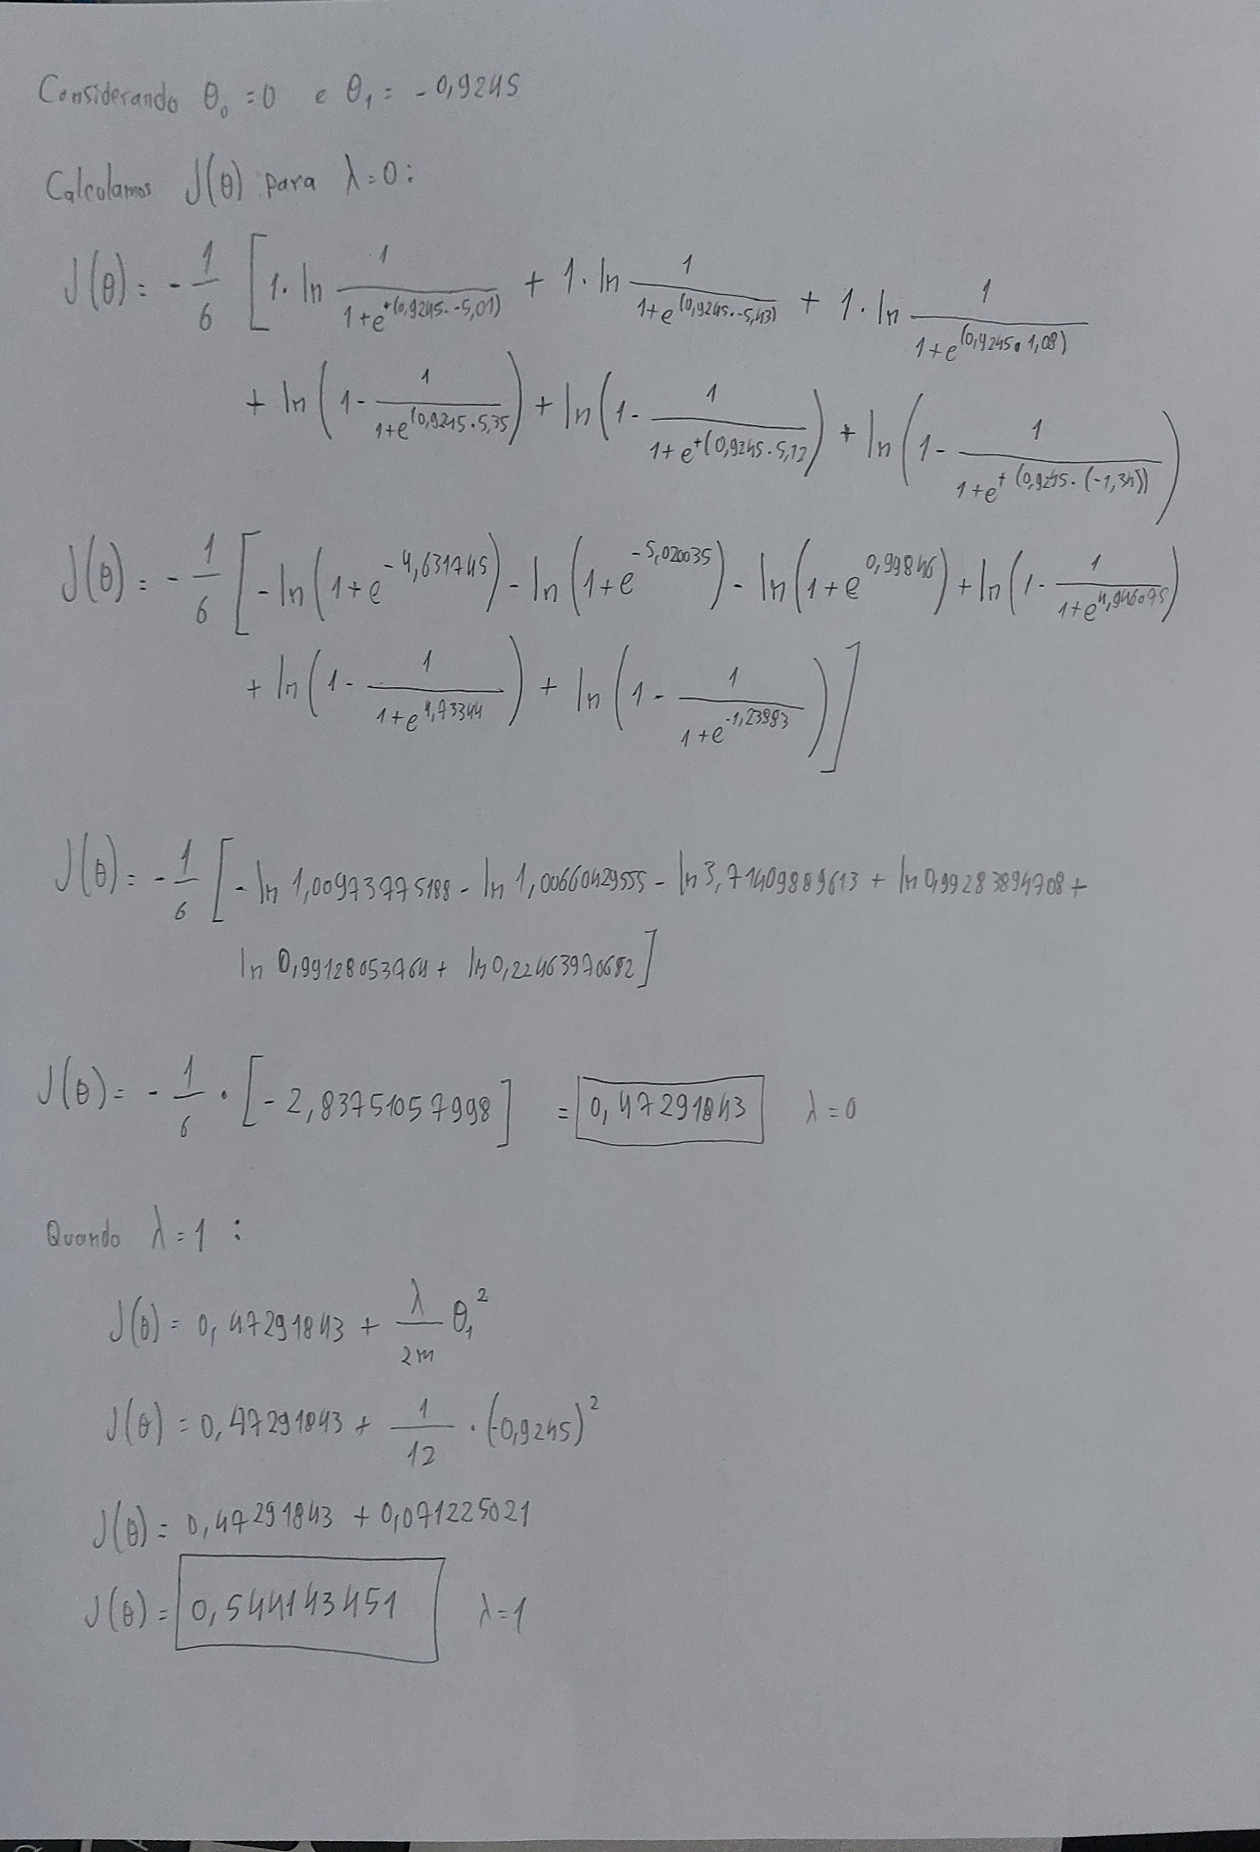 Considerando θ₀ = 0 e θ₁ = -0,9245
Calculamos J(θ) para λ=0:
J(θ) = - 1/6 [ 1. ln 1/(1+e^+(0,9245.-5,01)) + 1. ln 1/(1+e^(0,9245.-5,43)) + 1. ln 1/(1+e^(0,9245.1,08))
+ ln (1 - 1/(1+e^(0,9245.5,35)) + ln (1 - 1/(1+e^+(0,9245.5,12)) + ln (1 - 1/(1+e^+(0,9245.(-1,34))))
J(θ) = - 1/6 [ - ln (1+e^-4,631745) - ln (1+e^-5,020035) - ln (1+e^0,99846) + ln (1 - 1/(1+e^4,946075))
+ ln (1 - 1/(1+e^4,73344)) + ln (1 - 1/(1+e^-1,23883)) ]
J(θ) = - 1/6 [ - ln 1,00973775188 - ln 1,00660429555 - ln 3,71409889613 + ln 0,99283894708 +
ln 0,99128053764 + ln 0,22463970682 ]
J(θ) = - 1/6 . [ -2,83751057998 ] = 0,47291843 λ=0
Quando λ=1 :
J(θ) = 0,47291843 + λ/2m θ₁²
J(θ) = 0,47291843 + 1/12 . (-0,9245)²
J(θ) = 0,47291843 + 0,071225021
J(θ) = 0,544143451 λ=1